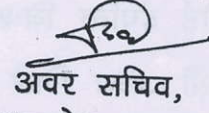 अवर सचिव,